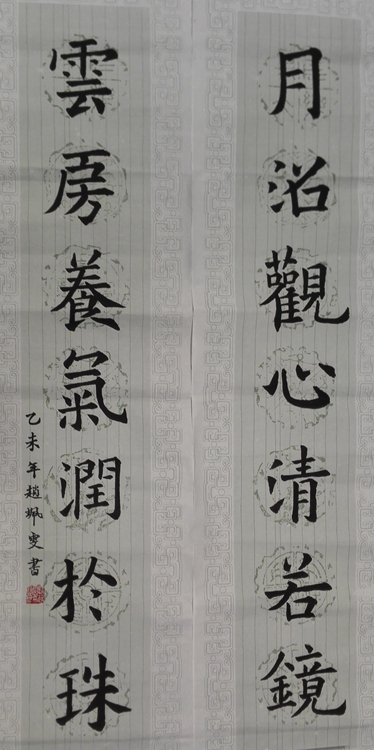 月沼觀心清若鏡
雲房養氣潤於珠
乙未年趙珮雯書